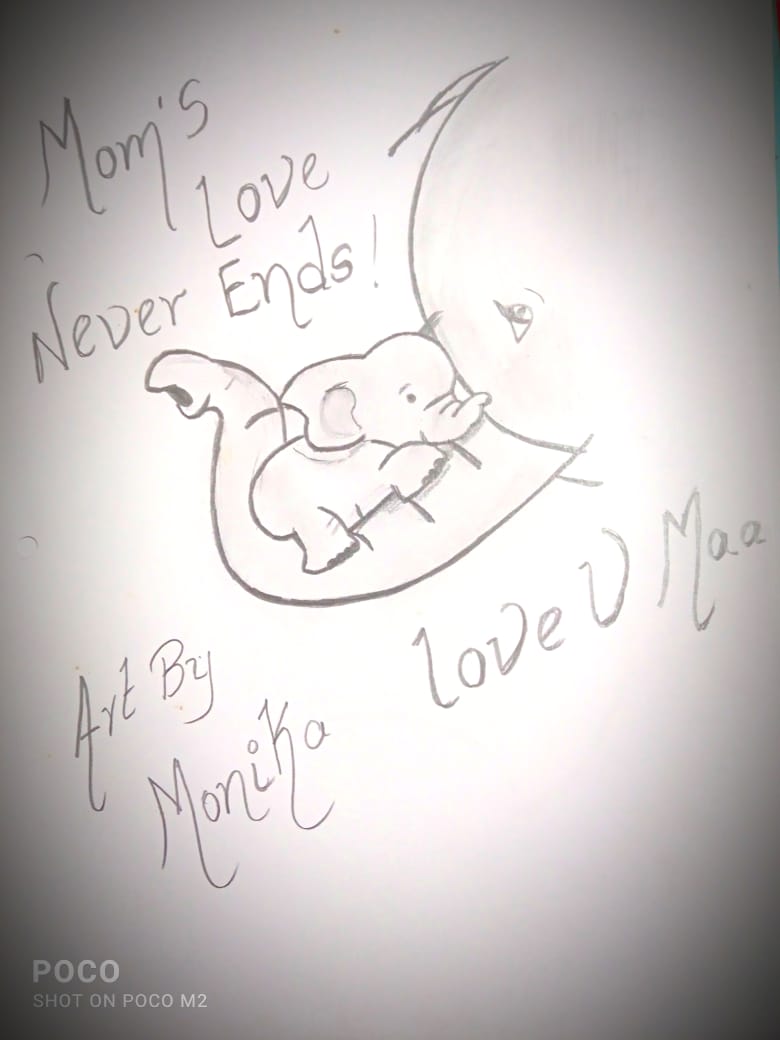 Mom's
Love
Never Ends!
Love U Maa
Art By
Monika
POCO
SHOT ON POCO M2